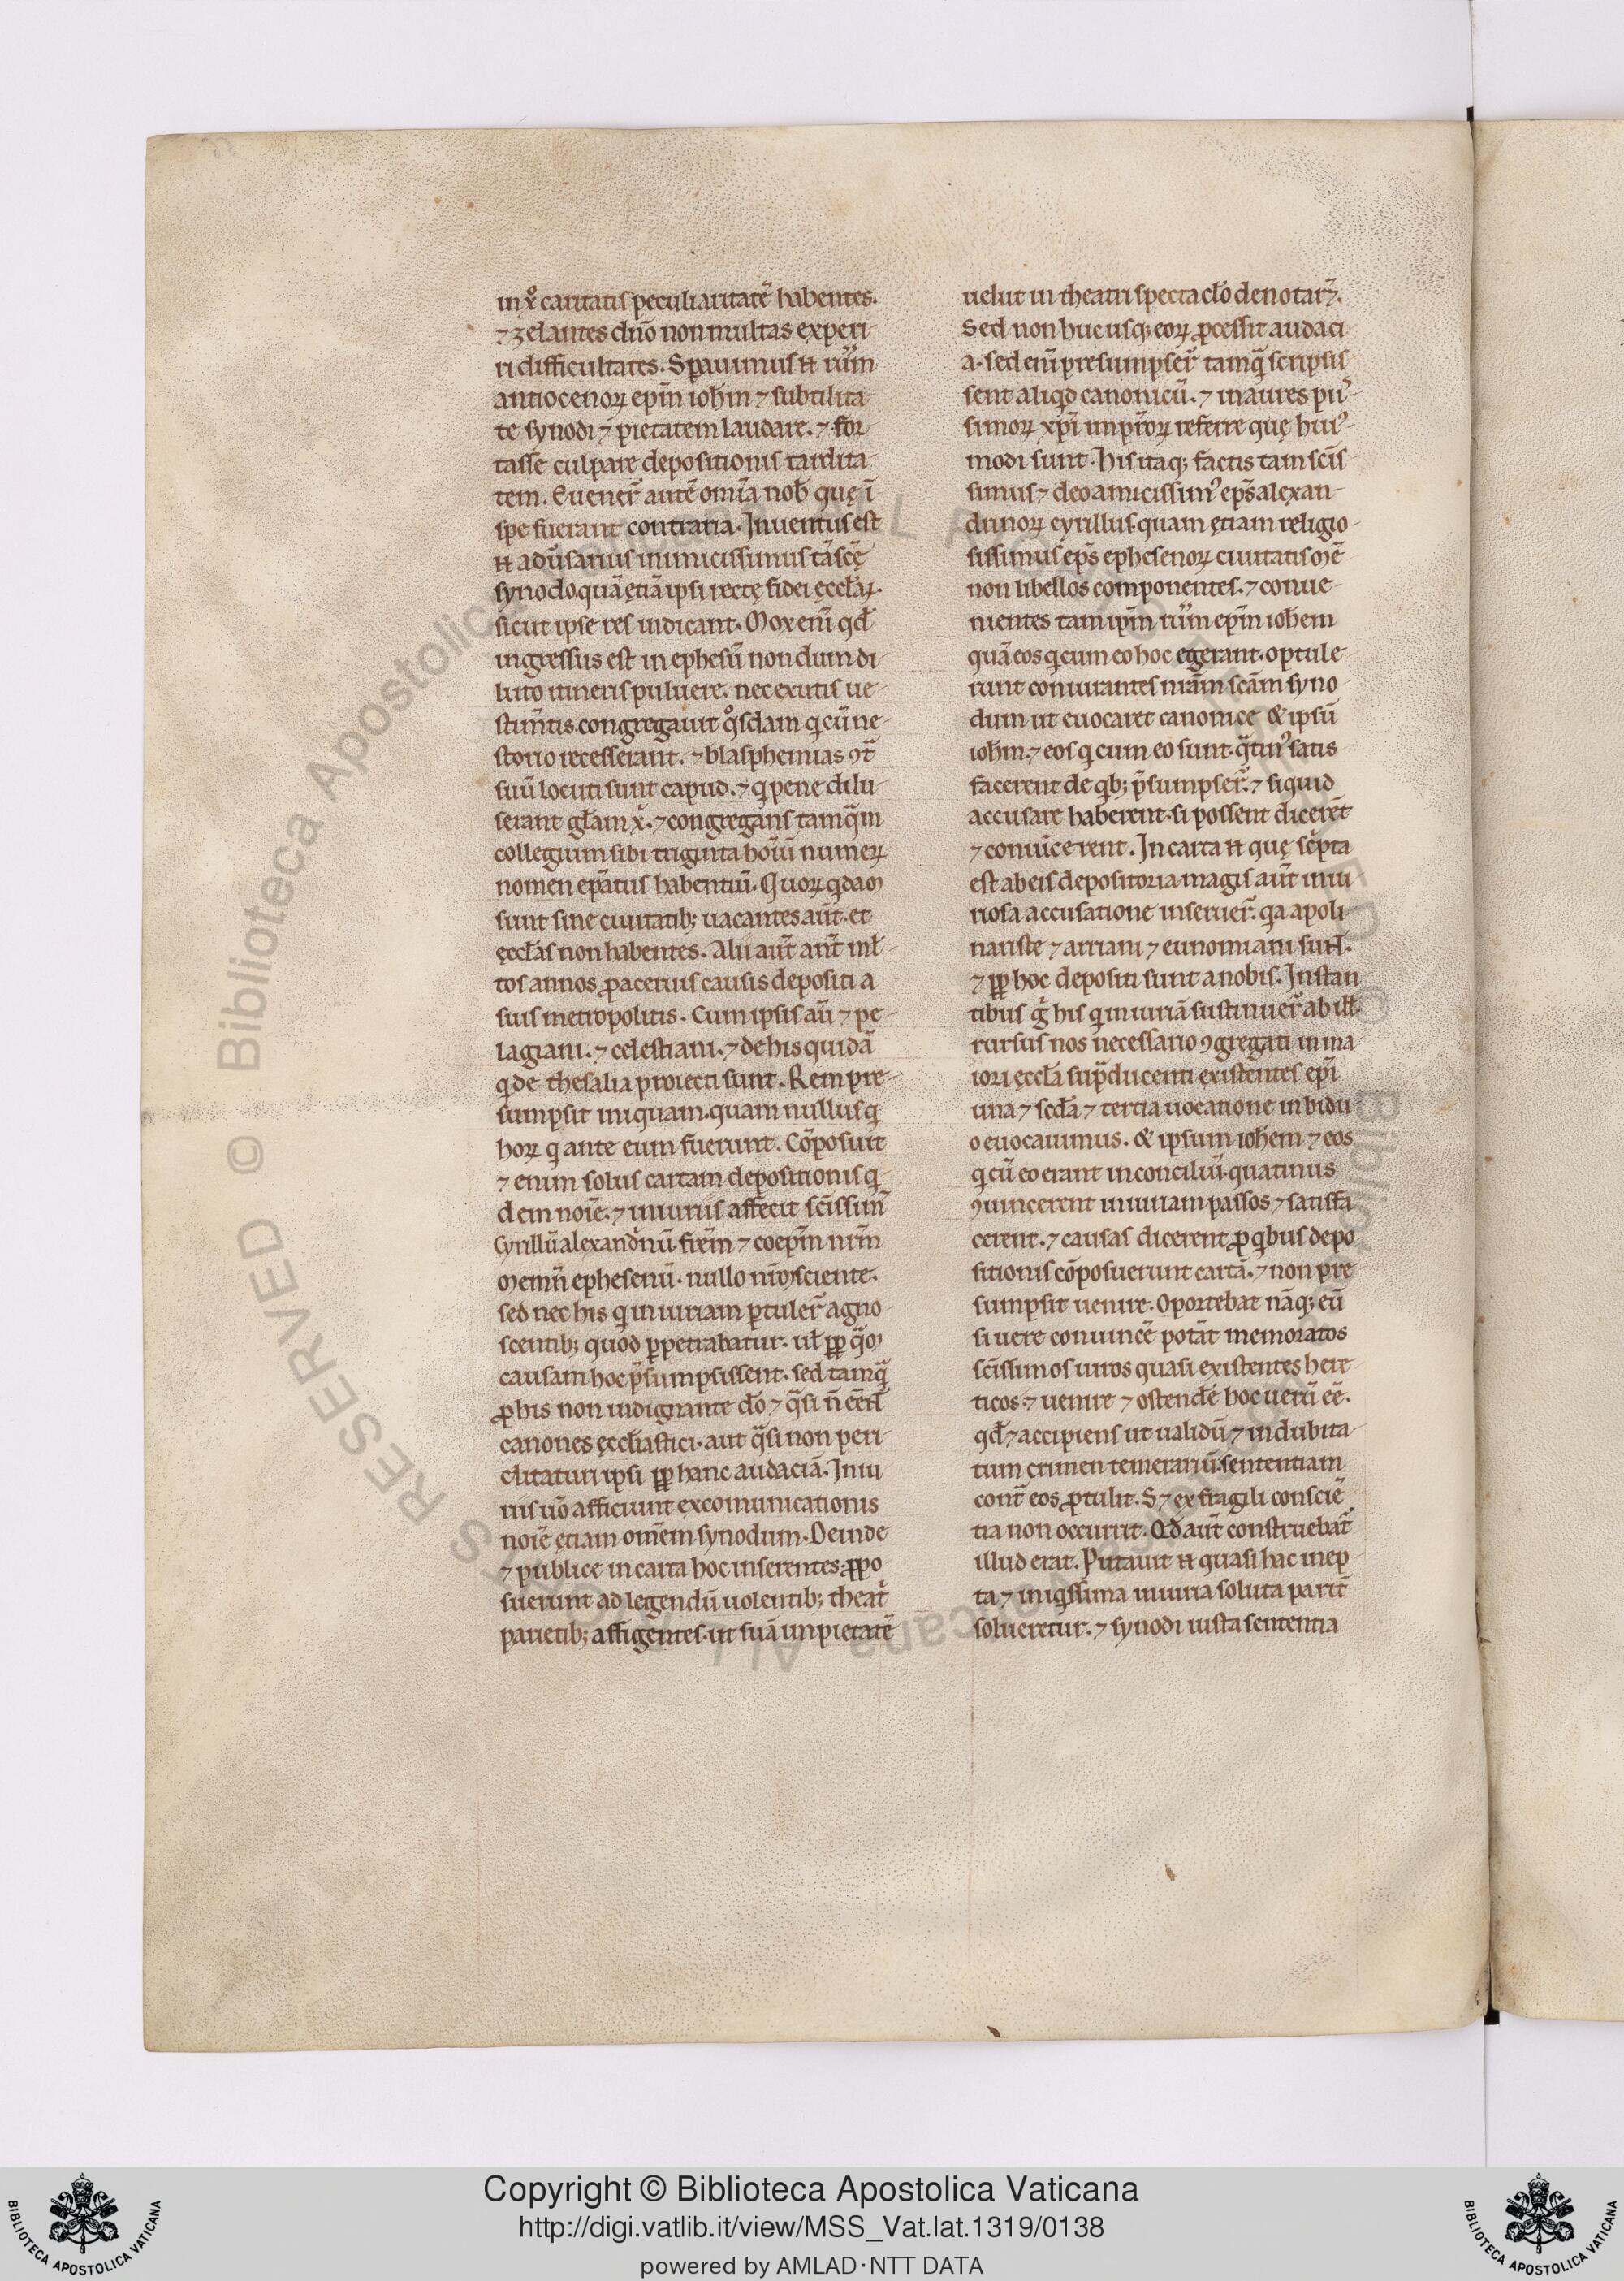 in xo caritatis peculiaritatē habentes.
⁊ zelantes dn̄o non multas experi-
ri difficultates. Sꝑauimus ⁊ uirū
antiocenoꝝ ep̄m ioh̄m ⁊ subtilita-
te synodi ⁊ pietatem laudare. ⁊ for
tasse culpare depositionis tardita-
tem. Euener̄ autē om̄ia nob̄ quę ī
spe fuerant contraria. Inuentus est
adūsarius inimicissimus tā sc̄ę
synodo quā ętiā ipsi rectę fidei ęccl̄aꝝ.
sicut ipse res indicant. Mox enī qd̄
ingressus est in ephesū non dum di
luto itineris puluere. nec exutis ue-
stim̄tis. congregauit qͦsdam qͥ cū ne-
storio recesserant. ⁊ blasphemias ꝯt̄
suū locuti sunt capud. ⁊ qͥ pene dilu-
serant gl̄am x̄. ⁊ congregans tamq̄m
collegium sibi triginta hoīū numeꝝ
nomen ep̄atus habentiū. Quoꝝ qͥdam
sunt sine ciuitatib; uacantes aūt. et
ęccl̄as non habentes. Alii aūt an̄t ml̄-
tos annos ꝓ aceruis causis depositi a
suis metropolitis. Cum ipsis aū ⁊ pe-
lagiani. ⁊ celestiani. ⁊ de his quidā
qͥ de thesalia proiecti sunt. Rem pre-
sumpsit iniquam. quam nullus qͥ
hoꝝ qͥ ante eum fuerunt. Cōposuit
⁊ enim solus cartam depositionis qͥ
dem noīe. ⁊ iniuriis affecit sc̄issim̄
Cyrillū alexandͥnū. fr̄em ⁊ coep̄m nr̄m
Memn̄ ephesenū. nullo nr̄m sciente.
sed nec his qͥ iniuriam ꝑtuler̄ agno-
scentib; quod ꝑpetrabatur. ul̄ ꝓp̄ q̄m
causam hoc p̄sumpsissent. sed tamq̄
ꝓ his non indignante do͞ ⁊ qͣsi n̄ cēnt̄
canones ęccl̄iastici. aut qͣsi non peri-
clitaturi ipsi ꝓp̄ hanc audaciā. Iniu
riis uo͞ afficiunt excomunicationis
noīe ętiam om̄em synodum. Deinde
⁊ publice in carta hoc inserentes. ꝓpo
suerunt ad legendū uolentib; theatͥ
parietib; affigentes. ut suā impietatē
uelut in theatri spectacl̄o denotar̄ꝫ.
Sed non hucusq; eoꝝ ꝓcessit audaci
a. sed enī presumpser̄ tamq̄ scripsis
sent aliqͥd canonicū. ⁊ in aures pii-
simoꝝ xp̄i imp̄roꝝ referre quę huiꝰ-
modi sunt. His itaq; factis tam sc̄is
simus ⁊ deo amicissimꝰ ep̄s alexan-
drinoꝝ cyrillus. quam ętiam religio-
sissimus ep̄s ephesenoꝝ ciuitatis mē
non libellos componentes. ⁊ conue-
nientes tam ip̄m uirū ep̄m ioh̄em
quā eos qͥ cum eo hoc egerant. optule
runt coniurantes nr̄am sc̄am syno
dum ut euocaret canonice & ipsū
ioh̄m. ⁊ eos qͥ cum eo sunt. qͣtinꝰ satis
facerent de qͥb; p̄sumpser̄. ⁊ siquid
accusare haberent. si possent dicer̄et
⁊ conuīcerent. In carta quę sc̄pta
est ab eis depositoria magis aūt iniu
riosa accusatione inseruer̄. qͥa apoli
nariste ⁊ arriani ⁊ eunomiani sunt̄.
⁊ ꝓp̄ hoc depositi sunt a nobis. Instan
tibus gͦ his qͥ iniuriā sustinuer̄ ab ill̄.
rursus nos necessario ꝯgregati in ma
iori ęccl̄a sup̄ ducenti existentes ep̄i
una ⁊ scd̄a ⁊ tertia uocatione in bidu
o euocauimus. & ipsum ioh̄em ⁊ eos
qͥ cū eo erant in conciliū. quatinus
ꝯuincerent iniuriam passos ⁊ satisfa
cerent. ⁊ causas dicerent ꝓ qͥbus depo
sitionis cōposuerunt cartā. ⁊ non pre
sumpsit uenire. Oportebat nāq; eū
si uere conuincē potāt memoratos
sc̄issimos uiros quasi existentes here-
ticos. ⁊ uenire ⁊ ostendē hoc uerū eē.
qd̄ ⁊ accipiens ut ualidū ⁊ indubita-
tum crimen temerariū. sententiam
cont̄ eos ꝓtulit. S ⁊ ex fragili consciē
tia non occurrit. Qd̄ aūt construebat̄
illud erat. Putauit quasi hac inep
ta ⁊ iniqͥssima iniuria soluta parit̄
solueretur. ⁊ synodi iusta sententia
Copyright © Biblioteca Apostolica Vaticana
http://digi.vatlib.it/view/MSS_Vat.lat.1319/0138
powered by AMLAD·NTT DATA
BIBLIOTECA APOSTOLICA VATICANA
BIBLIOTECA APOSTOLICA VATICANA